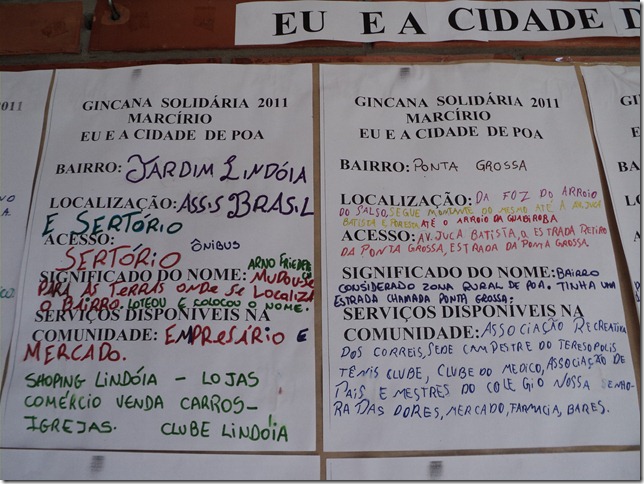 EU E A CIDADE D
2011
GINCANA SOLIDÁRIA 2011
MARCÍRIO
EU E A CIDADE DE POA
BAIRRO: JARDIM LINDÓIA
LOCALIZAÇÃO: ASSIS BRASIL
E SERTÓRIO
ACESSO: ÔNIBUS
SERTÓRIO
SIGNIFICADO DO NOME: ARNO FRIEDER MUDOU-SE
PARA AS TERRAS ONDE SE LOCALIZA
O BAIRRO. LOTEOU E COLOCOU O NOME.
SERVIÇOS DISPONÍVEIS NA
COMUNIDADE: EMPRESÁRIO E
MERCADO.
SHOPING LINDÓIA - LOJAS
COMÉRCIO VENDA CARROS-
IGREJAS. CLUBE LINDÓIA
GINCANA SOLIDÁRIA 2011
MARCÍRIO
EU E A CIDADE DE POA
BAIRRO: PONTA GROSSA
LOCALIZAÇÃO: DA FOZ DO ARROIO
DO SALSO, SEGUE MONTANTE DO MESMO ATÉ A AV. JUCA
BATISTA E ATÉ O ARROIO DA GUABIROBA
ACESSO: AV. JUCA BATISTA, A ESTRADA RETIRO
DA PONTA GROSSA, ESTRADA DA PONTA GROSSA.
SIGNIFICADO DO NOME: BAIRRO
CONSIDERADO ZONA RURAL DE POA. TINHA UMA
ESTRADA CHAMADA PONTA GROSSA.
SERVIÇOS DISPONÍVEIS NA
COMUNIDADE: ASSOCIAÇÃO RECREATIVA
DOS CORREIS, SEDE CAMPESTRE DO TERESOPOLIS
TÊNIS CLUBE, CLUBE DO MEDICO, ASSOCIAÇÃO DE
PAIS E MESTRES DO COLEGIO NOSSA SENHO-
RA DAS DORES, MERCADO, FARMACIA, BARES.